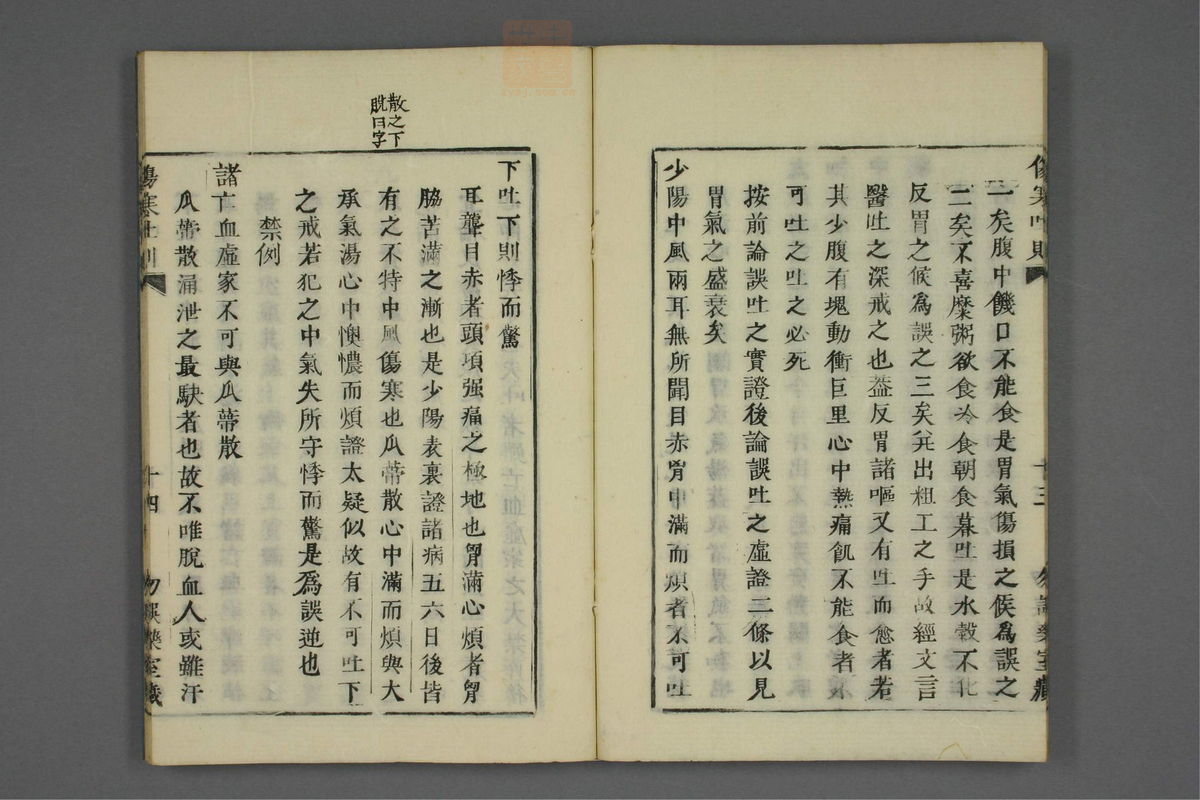 傷寒吐則
十三
勿誤藥室藏
一矣腹中饑口不能食是胃氣傷損之候爲誤之
二矣不喜糜粥欲食冷食朝食暮吐是水穀不化
反胃之候爲誤之三矣并出粗工之手故經文言
醫吐之深戒之也蓋反胃諸嘔又有吐而愈者若
其少腹有塊動衝巨里心中熱痛飢不能食者不
可吐之吐之必死
按前論誤吐之實證後論誤吐之虛證二條以見
胃氣之盛衰矣
少陽中風兩耳無所聞目赤胷中滿而煩者不可吐
散之下
脫曰字
下吐下則悸而驚
耳聾目赤者頭項强痛之極地也胷滿心煩者胷
脇苦滿之漸也是少陽表裏證諸病五六日後皆
有之不特中風傷寒也瓜蒂散心中滿而煩與大
承氣湯心中懊憹而煩證太疑似故有不可吐下
之戒若犯之中氣失所守悸而驚是爲誤逆也
禁例
諸亡血虛家不可與瓜蒂散
瓜蒂散漏泄之最駃者也故不唯脫血人或雖汗
傷寒吐則
十四
勿誤藥室藏